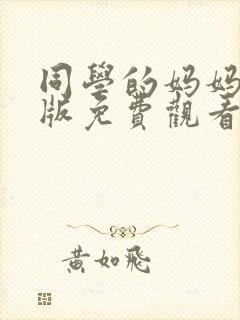 同學的妈妈
版免費觀看
黃如飛